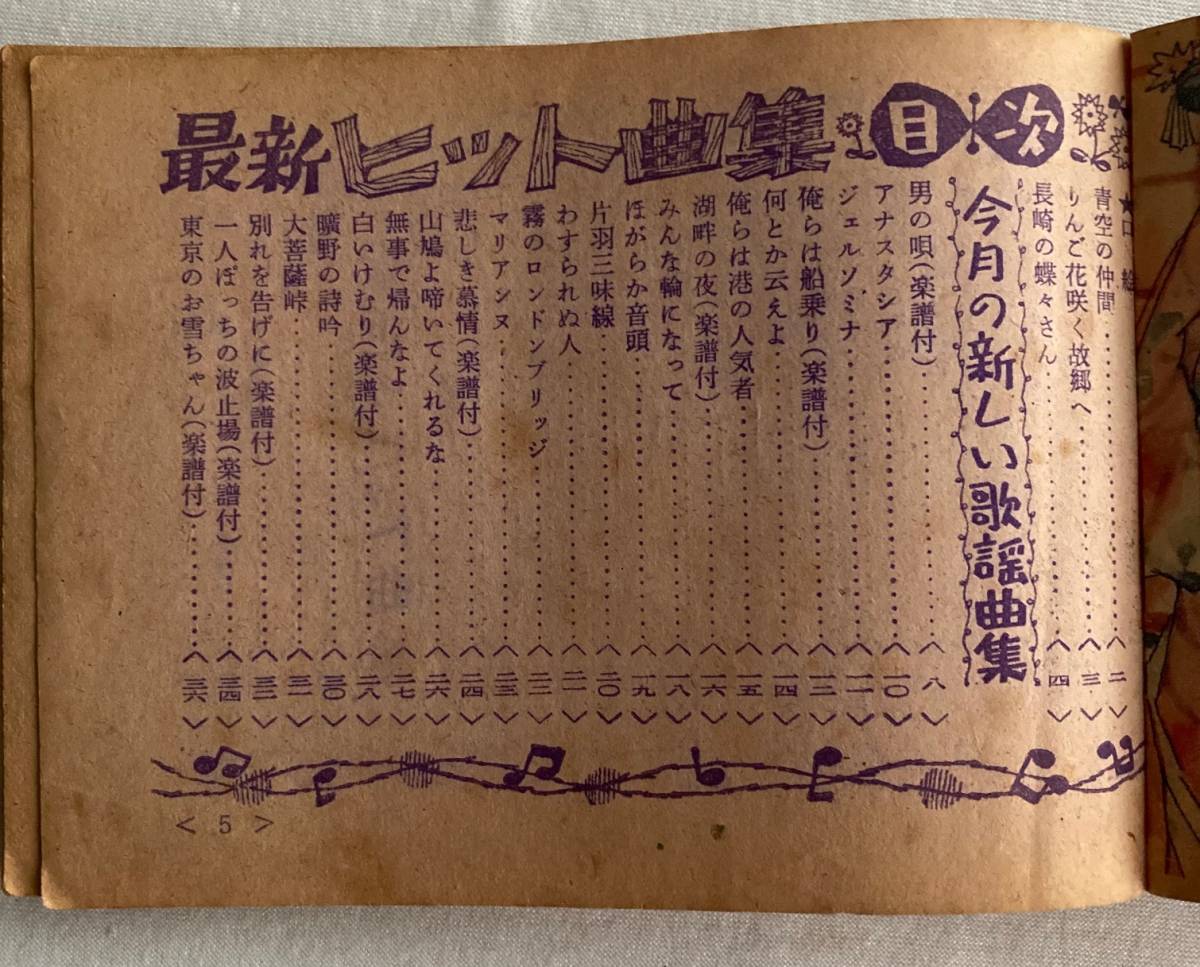 最新ヒット曲集 目次
★口絵
青空の仲間……〈二〉
りんご花咲く故郷へ……〈三〉
長崎の蝶々さん……〈四〉
今月の新しい歌謡曲集
男の唄(楽譜付)……〈八〉
アナスタシア……〈一〇〉
ジェルソミナ……〈一一〉
俺らは船乗り(楽譜付)……〈一二〉
何とか云えよ……〈一四〉
俺らは港の人気者……〈一五〉
湖畔の夜(楽譜付)……〈一六〉
みんな輪になって……〈一八〉
ほがらか音頭……〈一九〉
片羽三味線……〈二〇〉
わすられぬ人……〈二一〉
霧のロンドンブリッジ……〈二二〉
マリアンヌ……〈二三〉
悲しき慕情(楽譜付)……〈二四〉
山鳩よ啼いてくれるな……〈二六〉
無事で帰んなよ……〈二七〉
白いけむり(楽譜付)……〈二八〉
曠野の詩吟……〈三〇〉
大菩薩峠……〈三一〉
別れを告げに(楽譜付)……〈三二〉
一人ぼっちの波止場(楽譜付)……〈三四〉
東京のお雪ちゃん(楽譜付)……〈三六〉
<5>